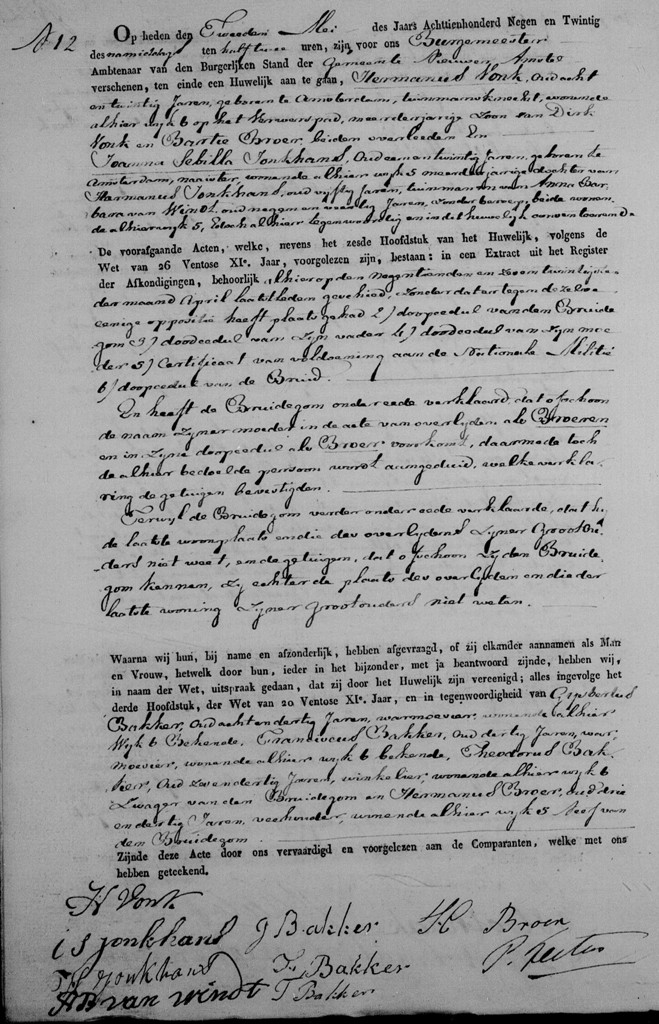 N 12
Op heden den Tweeden Mei des Jaars Achttienhonderd Negen en Twintig
des namiddags ten half twee uren, zijn voor ons Burgemeester
Ambtenaar van den Burgerlijken Stand der Gemeente Nieuwer Amstel
verschenen, ten einde een Huwelijk aan te gaan, Hermanus Vonk, oud acht
en twintig Jaren, geboren te Amsterdam, tuinmansknecht, wonende
alhier wijk 6 op het pad, meerderjarige zoon van Dirk
Vonk en Bartie Broer, beiden overleeden En
Joanna Sebilla Jonkhans, oud een en twintig Jaren, geboren te
Amsterdam, naaister, wonende alhier wijk 5 meerderjarige dochter van
Hermanus Jonkhans, oud vijftig Jaren, tuinman en van Anna Bar
bara van Windt, oud negen en veertig Jaren, zonder beroep, beide wonen
de alhier wijk 5, Edoch alhier tegenwoordig en in dit huwelijk consenteerende
De voorafgaande Acten, welke, nevens het zesde Hoofdstuk van het Huwelijk, volgens de
Wet van 26 Ventose XIe. Jaar, voorgelezen zijn, bestaan: in een Extract uit het Register
der Afkondigingen, behoorlijk alhier op den Negentienden en Zes en twintigste
der maand April laatstleden geschied, zonder dat er tegen dezelve
eenige oppositie heeft plaats gehad 2) doopcedul van den Bruide
gom 3) doodcedul van zijn vader 4) doodcedul van zijn moe
der 5) Certificaat van voldoening aan de Nationale Militie
6) doopcedul van de Bruid.
En heeft de Bruidegom onder eede verklaard, dat ofschoon
de naam zijner moeder in de acte van overlijden als Broeren
en in zijne doopcedul als Broer voorkomt, daarmede toch
de alhier bedoelde persoon wordt aangeduid, welke verkla
ring de getuigen bevestigden.
Terwijl de Bruidegom verder onder eede verklaarde, dat hij
de laatste woonplaats en die der overlijdens zijner Grootou
ders niet weet, en de getuigen, dat ofschoon zij den Bruide
gom kennen, zij echter de plaats der overlijden en die der
laatste woning zijner grootouders niet weten.
Waarna wij hun, bij name en afzonderlijk, hebben afgevraagd, of zij elkander aannamen als Man
en Vrouw, hetwelk door hun, ieder in het bijzonder, met ja beantwoord zijnde, hebben wij,
in naam der Wet, uitspraak gedaan, dat zij door het Huwelijk zijn vereenigd; alles ingevolge het
derde Hoofdstuk, der Wet van 20 Ventose XIe. Jaar, en in tegenwoordigheid van Gijsbertus
Bakker, oud acht en dertig Jaren, warmoezier, wonende alhier
Wijk 6 Bekende, Franciscus Bakker, oud dertig Jaren, war
moezier, wonende alhier wijk 6 bekende, Theodorus Bak
ker, oud zeven dertig Jaren, winkelier, wonende alhier wijk 6
Zwager van den Bruidegom en Hermanus Broer, oud drie
en dertig Jaren, veehouder, wonende alhier wijk 5 Neef van
den Bruidegom
Zijnde deze Acte door ons vervaardigd en voorgelezen aan de Comparanten, welke met ons
hebben geteekend.
H Vonk
i S jonkhans G Bakker H Broer
H jonkhans F Bakker P.
AB van windt T Bakker